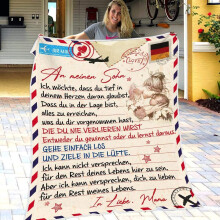 An meinen Sohn
Ich möchte, dass du tief in
deinem Herzen daran glaubst,
Dass du in der Lage bist,
alles zu erreichen,
was du dir vorgenommen hast,
DIE DU NIE VERLIEREN WIRST
Entweder du gewinnst oder du lernst daraus.
GEHE EINFACH LOS
UND ZIELE IN DIE LÜFTE.
Ich kann nicht versprechen,
für den Rest deines Lebens hier zu sein.
Aber ich kann versprechen, dich zu lieben
für den Rest meines Lebens.
In Liebe, Mama